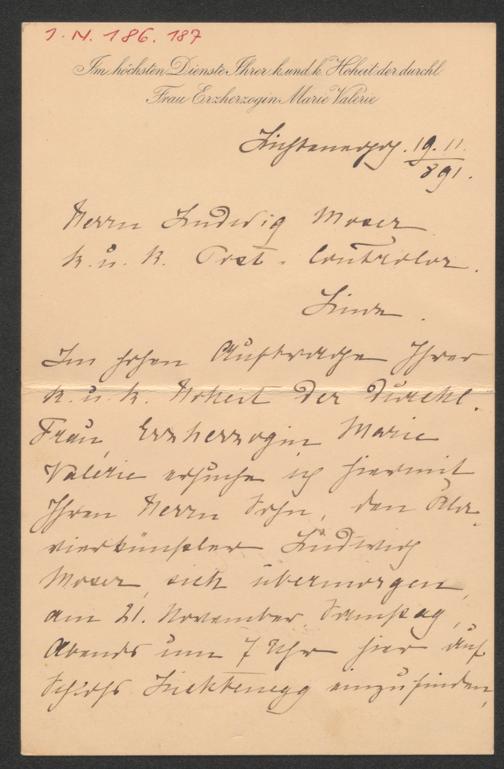 J. N. 186.187
Im höchsten Dienste Ihrer k. und k. Hoheit der durchl
Frau Erzherzogin Marie Valerie
Lichtenegg. 19. 11.
891.
Herrn Ludwig Moser
k. u. k. Post-Controlor.
Linz.
Im hohen Auftrage Ihrer
k. u. k. Hoheit der durchl.
Frau Erzherzogin Marie
Valerie ersuche ich hiermit
Ihren Herrn Sohn, den Kla-
vierkünstler Ludwig
Moser, sich übermorgen,
am 21. November, Samstag,
Abends um 7 Uhr hier auf
Schloß Lichtenegg einzufinden,